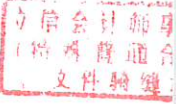 立信会计师事
(特殊普通合
文件骑缝